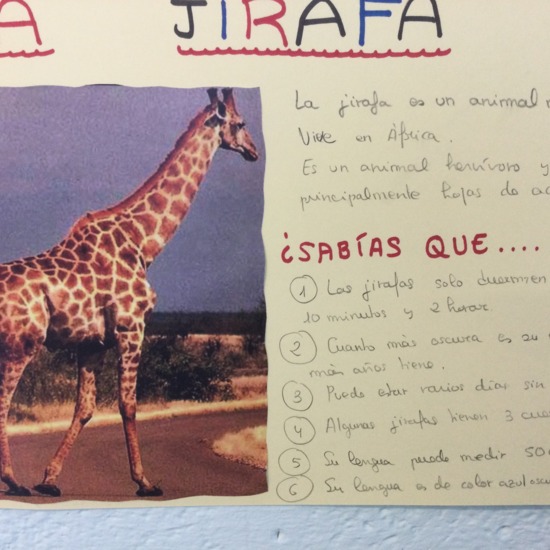 A JIRAFA
La jirafa es un animal
Vive en África.
Es un animal hervívoro y
principalmente hojas de ac
¿SABÍAS QUE....
1 Las jirafas solo duermen
10 minutos y 2 horas.
2 Cuanto más oscura es su
más años tiene.
3 Puede estar varios días sin
4 Algunas jirafas tienen 3 cue
5 Su lengua puede medir 50
6 Su lengua es de color azul oscu